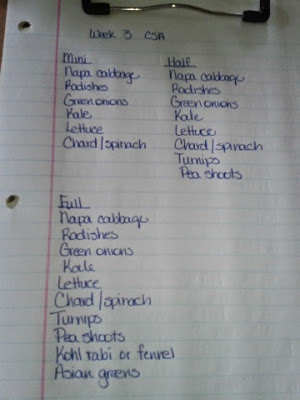 Week 3 CSA
Mini
Napa cabbage
Radishes
Green onions
Kale
Lettuce
Chard/spinach
Half
Napa cabbage
Radishes
Green onions
Kale
Lettuce
Chard/spinach
Turnips
Pea shoots
Full
Napa cabbage
Radishes
Green onions
Kale
Lettuce
Chard/spinach
Turnips
Pea shoots
Kohl rabi or fennel
Asian greens